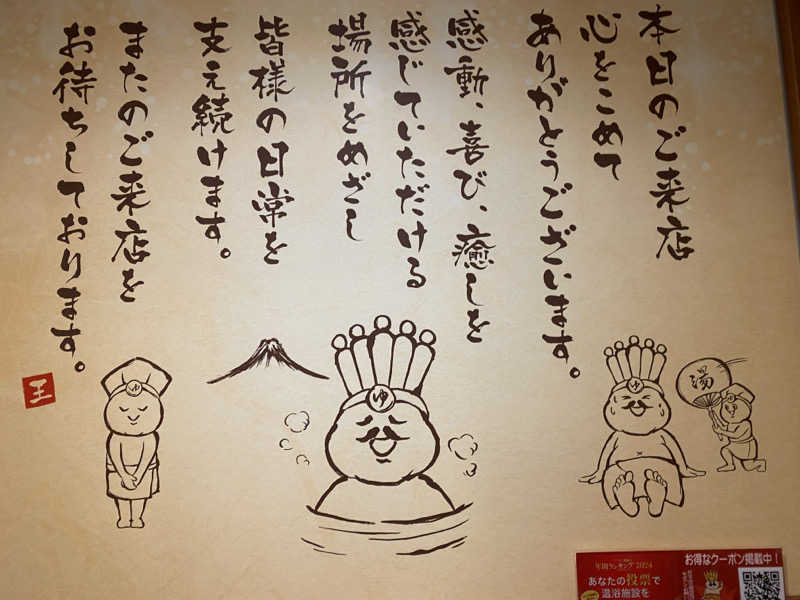 本日のご来店
心をこめて
ありがとうございます。
感動、喜び、癒しを
感じていただける
場所をめざし
皆様の日常を
支え続けます。
またのご来店を
お待ちしております。
王
ゆ
ゆ
ゆ
湯
年間ランキング2024
あなたの投票で
温浴施設を
お得なクーポン掲載中!